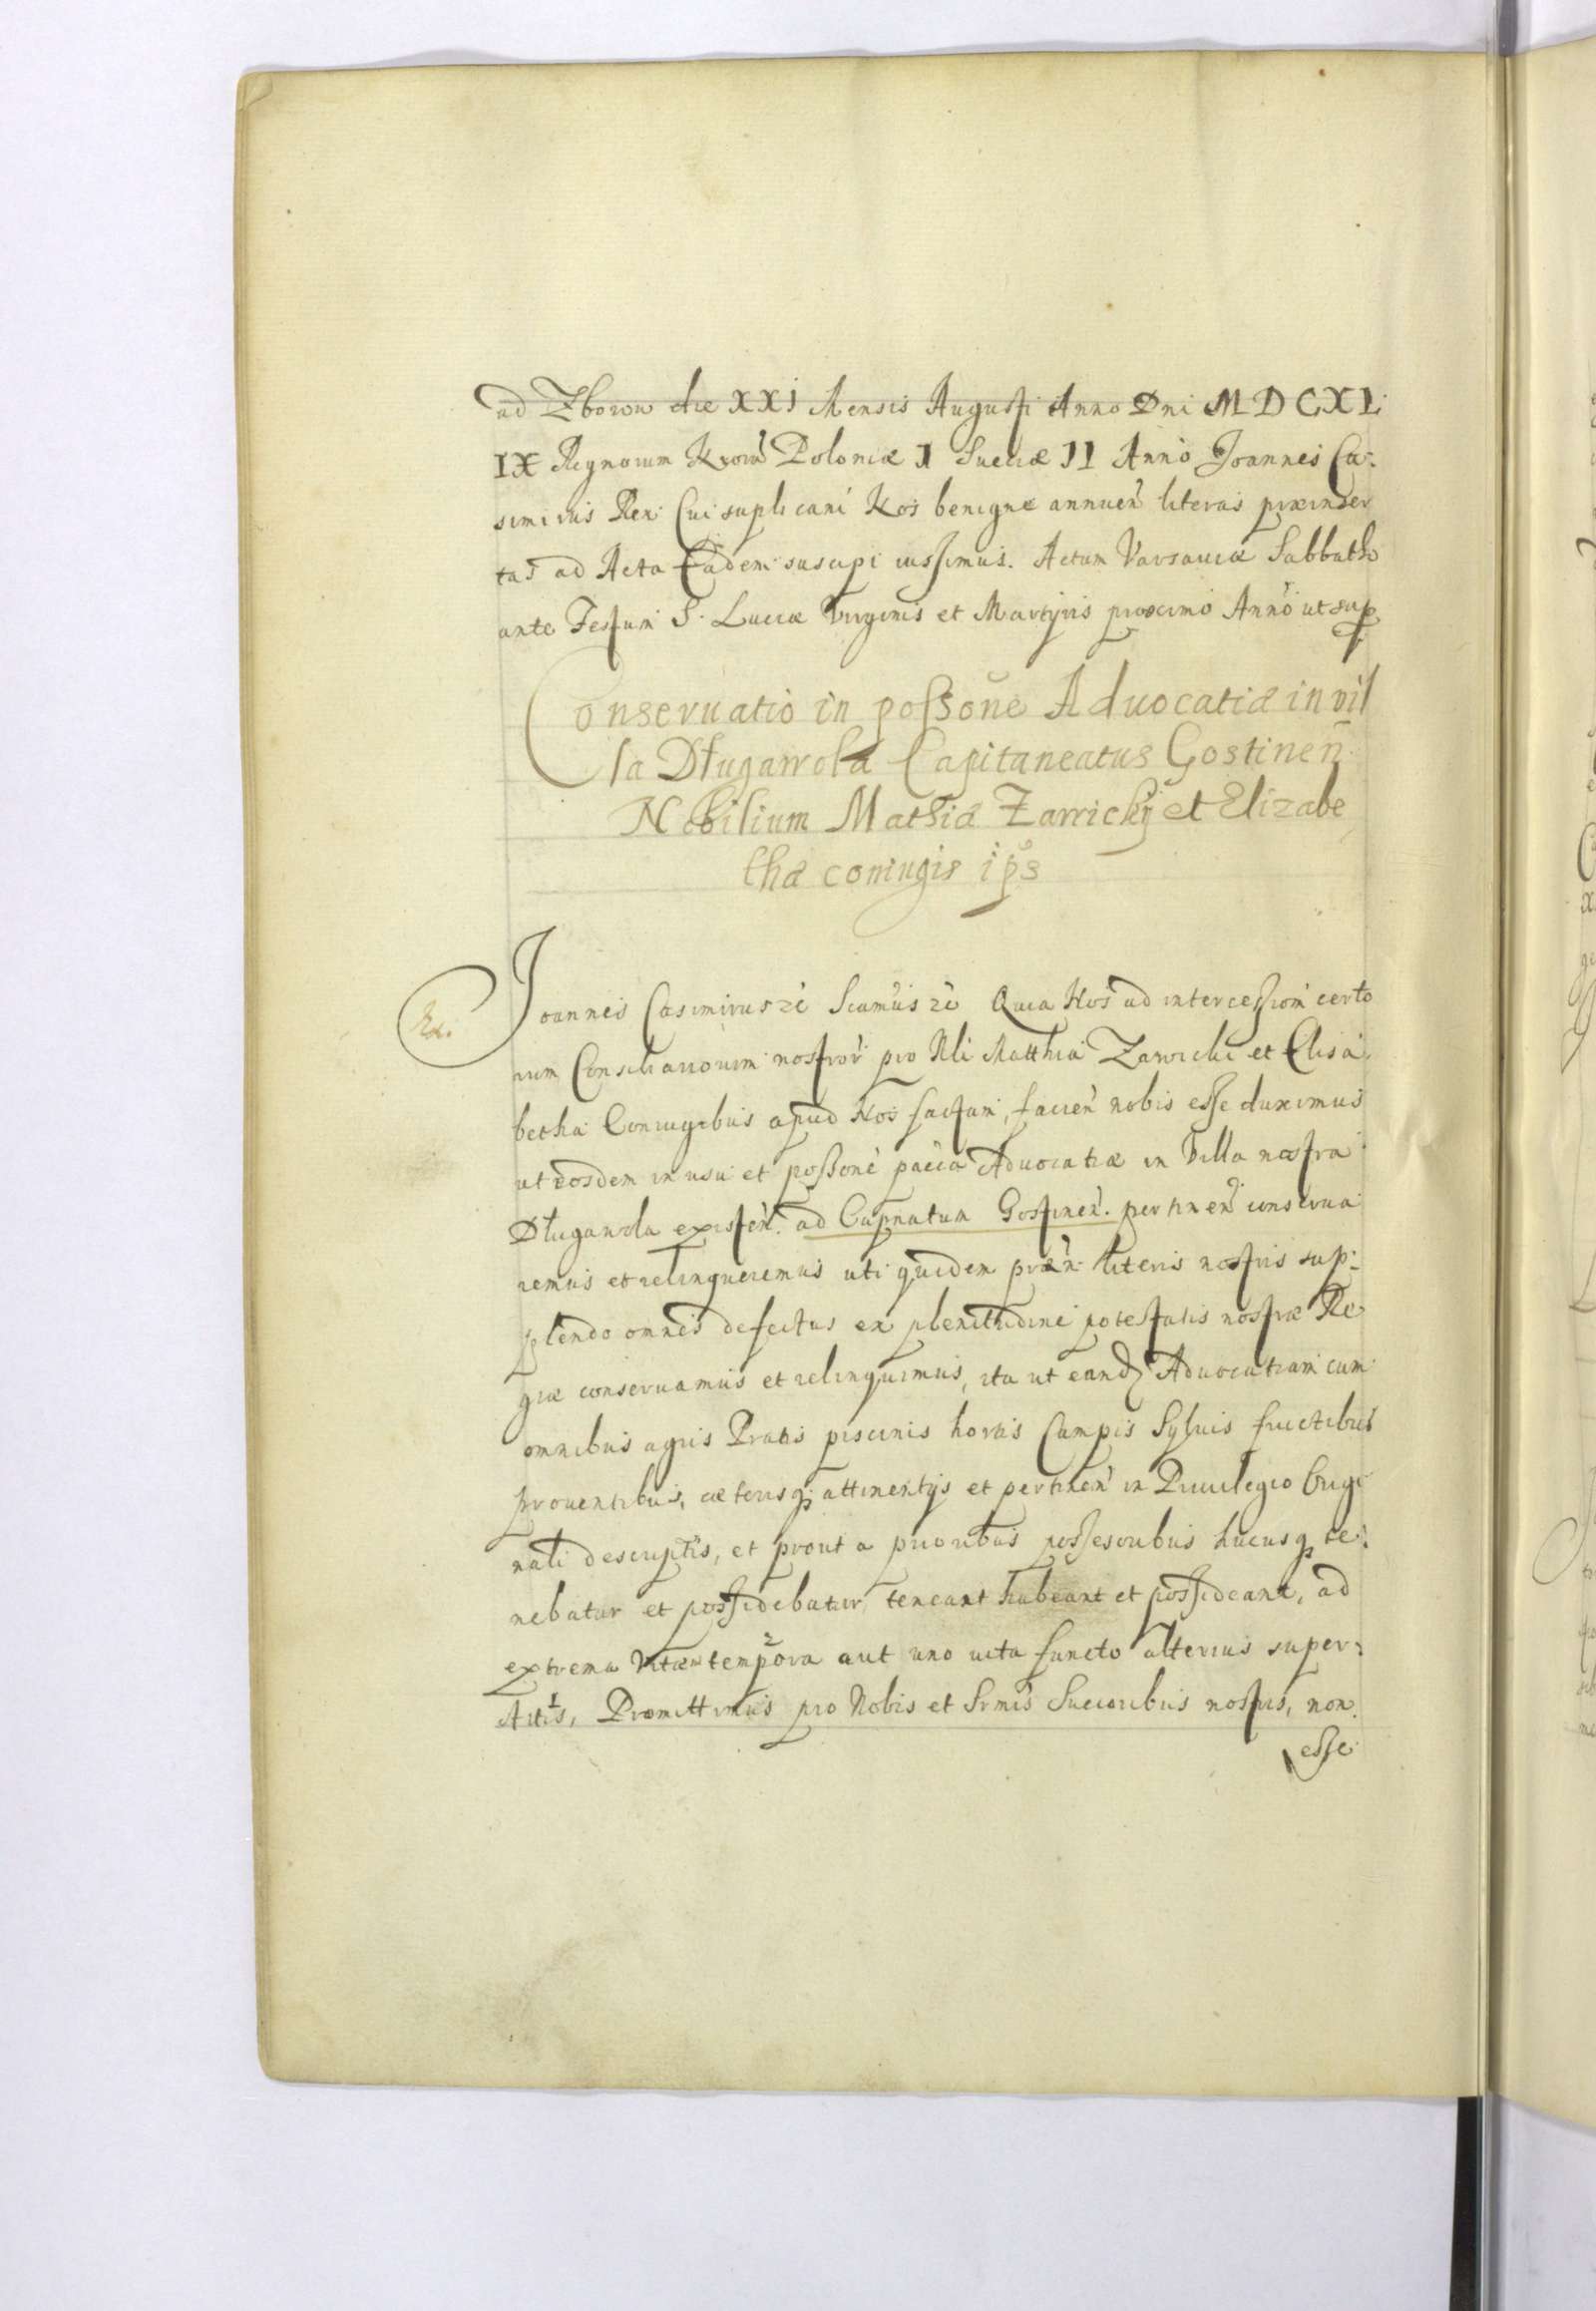 ad Zborow die XXI Mensis Augusti Anno Dni MDCXL
IX Regnorum Nror̃ Poloniæ I Sueciæ II Anno Joannes Ca-
simirus Rex Cui suplicani Nos benigne annuen̄ literas præinser
tas ad Acta Eadem suscipi iussimus. Actum Varsauiæ Sabbatho
ante Festum S. Luciæ Virginis et Martyris proximo Anno ut sup
Conseruatio in possone Aduocatiæ in vil
la Długawola Capitaneatus Gostinen̄
Nobilium Mathiæ Zawickij et Elizabe
thæ coniugis ip̃s
Joannes Casimirus zc̃ Scamus zc̃ Quia Nos ad intercession̄ certo
rum Consiliariorum nostror̄ pro Nli Matthia Zawicki et Elisa
betha Coniugibus apud Nos factam, facien̄ nobis esse duximus
ut eosdem in usu et possone pacca Aduocatiæ in Villa nostra
Długawola existen̄. ad Capnatum Gostinen̄. pertinen̄ conserua
remus et relinqueremus uti quidem præn̄ literis nostris sup-
plendo omnes defectus ex plenitudine potestatis nostræ Re
giæ conseruamus et relinquimus, ita ut eandȝ Aduocatiam cum
omnibus agris Pratis piscinis hortis Campis Syluis fructibus
prouentibus, cæterisqȝ attinentijs et pertinen̄ in Priuilegio Origi
nali descriptis, et prout a prioribus possesoribus hucusqȝ te-
nebatur et possidebatur teneant habeant et possideant, ad
extrema Vitæ tempora aut uno uita functo alterius super-
stitis, Promittimus pro Nobis et Srmis Succoribus nostris, non
esse